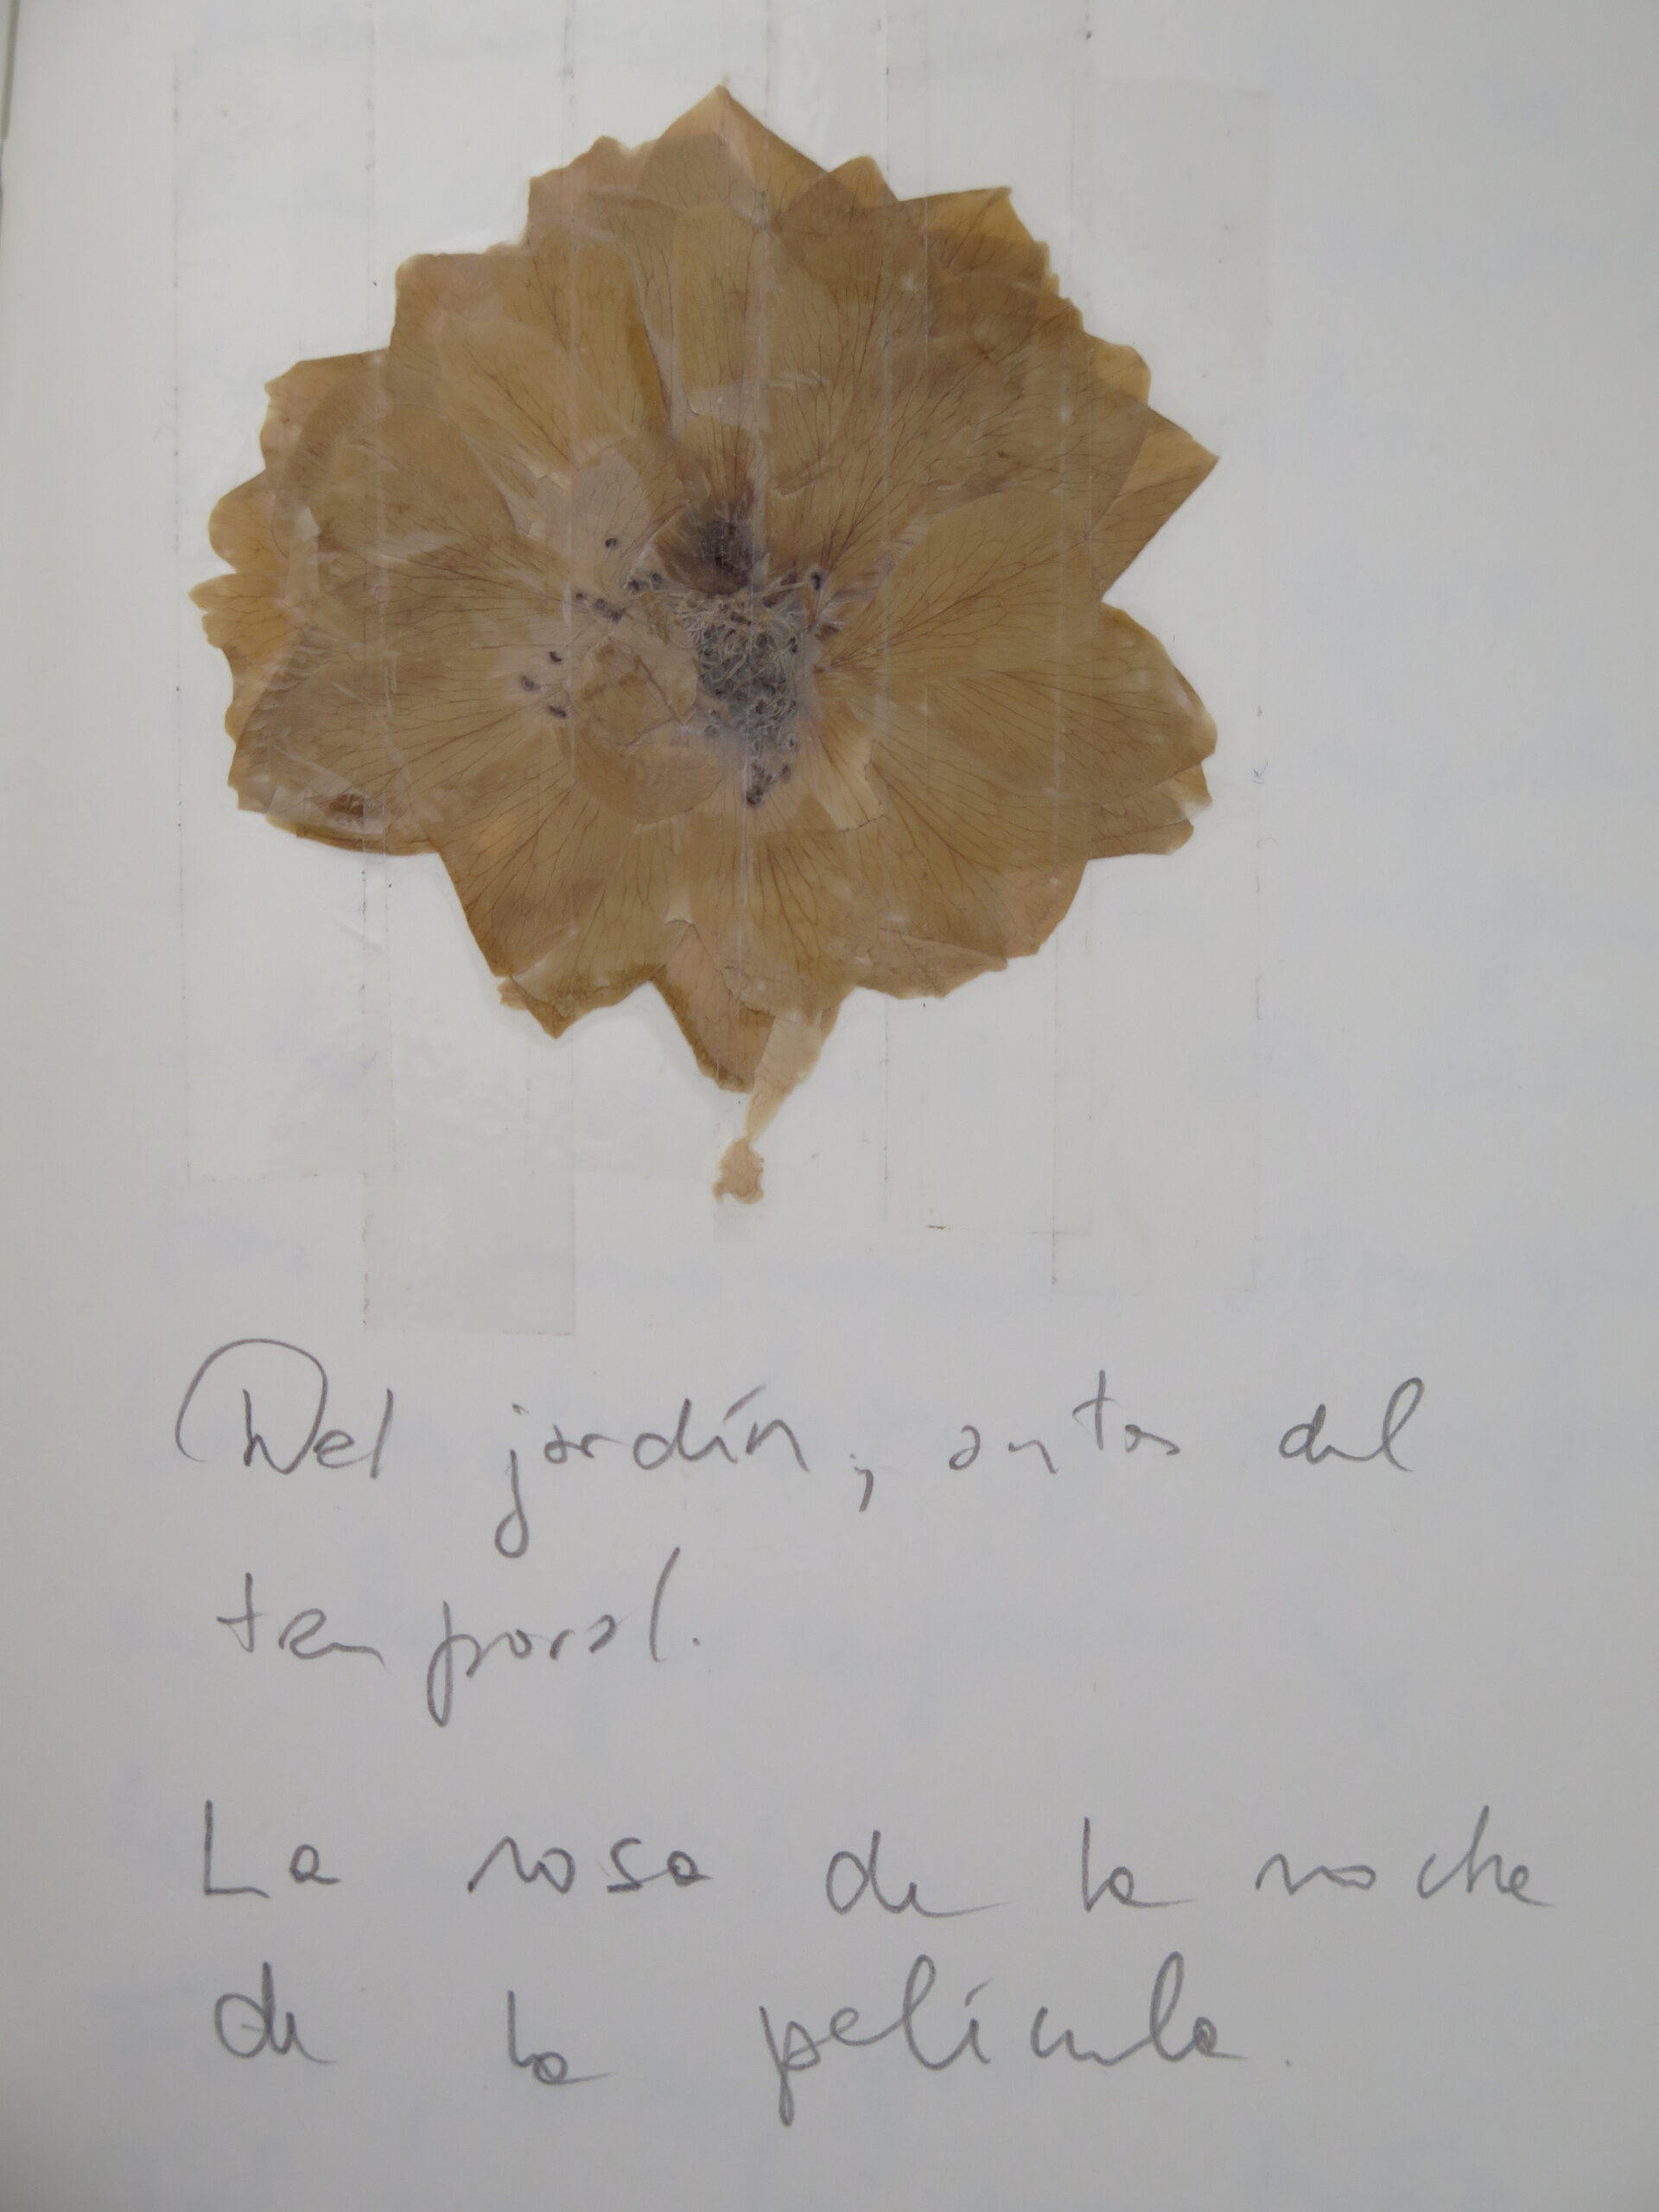 Del jardín, antes del
temporal.
La rosa de la noche
de la película.